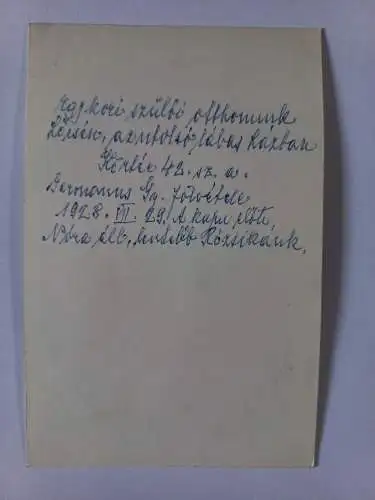 Egykori szülői otthonunk
Lőcsén, az utolsó lábas házban
Körtér 42. sz. a.
Germanus Gy. fölvétele
1928. VII. 29. A kapu előtt
Nóra áll, mutatób Rózsikánk.